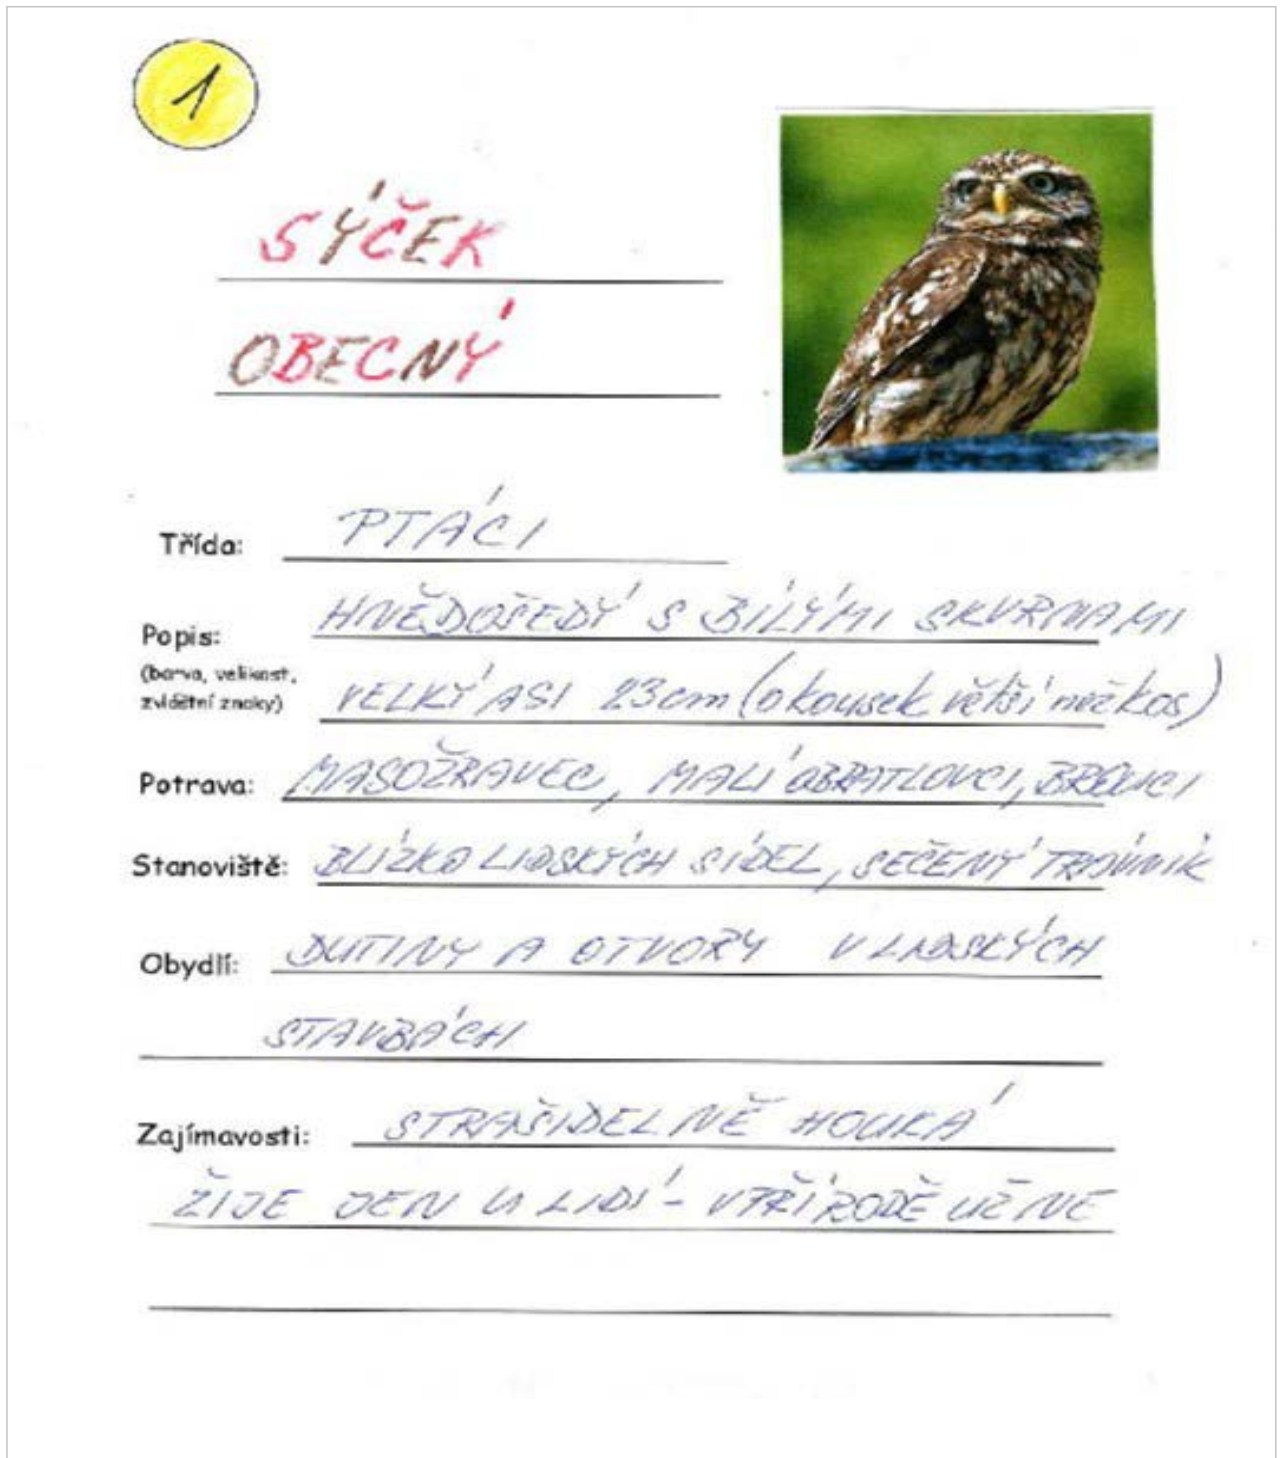 1
SÝČEK
OBECNÝ
Třída: PTÁCI
Popis: HNĚDOŠEDÝ S BÍLÝMI SKVRNAMI
(barva, velikost,
zvláštní znaky) VELKÝ ASI 23cm (o kousek větší než kos)
Potrava: MASOŽRAVEC, MALÍ OBRATLOVCI, BROUCI
Stanoviště: BLÍZKO LIDSKÝCH SÍDEL, SEČENÝ TRÁVNÍK
Obydlí: DUTINY A OTVORY V LIDSKÝCH
STAVBÁCH
Zajímavosti: STRAŠIDELNĚ HOUKÁ
ŽIJE JEN U LIDÍ - V PŘÍRODĚ UŽ NE